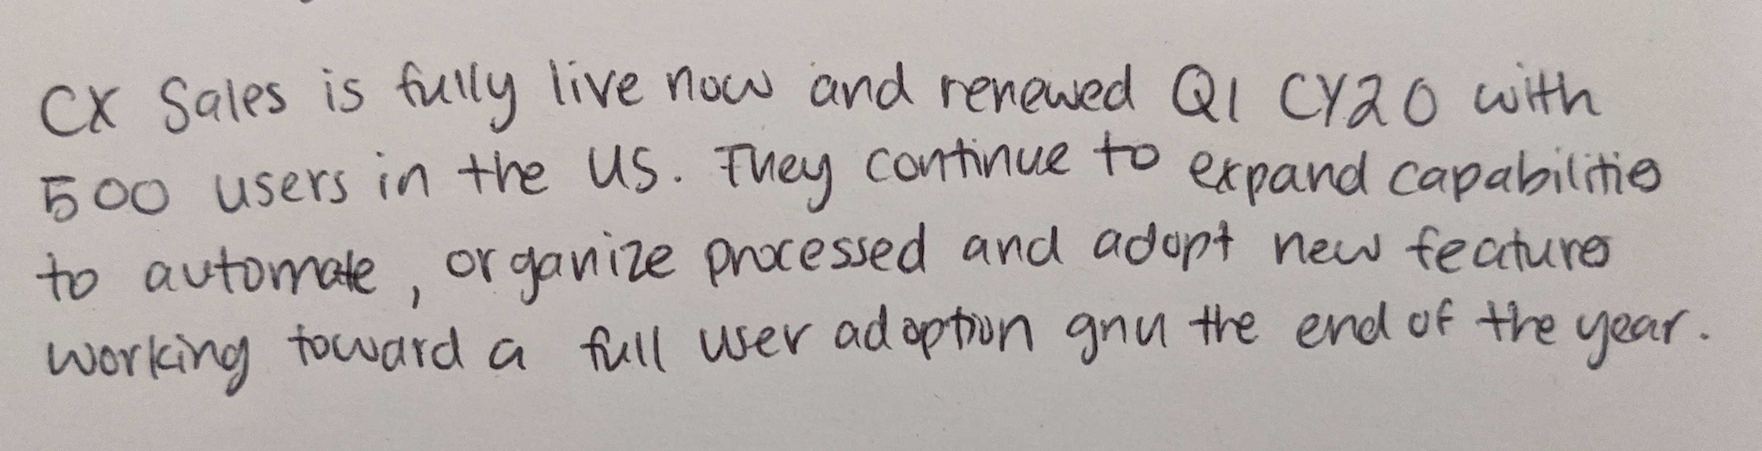 CX Sales is fully live now and renewed Q1 CY20 with
500 users in the US. They continue to expand capabilities
to automate, organize processed and adopt new features
working toward a full user adoption gnu the end of the year.